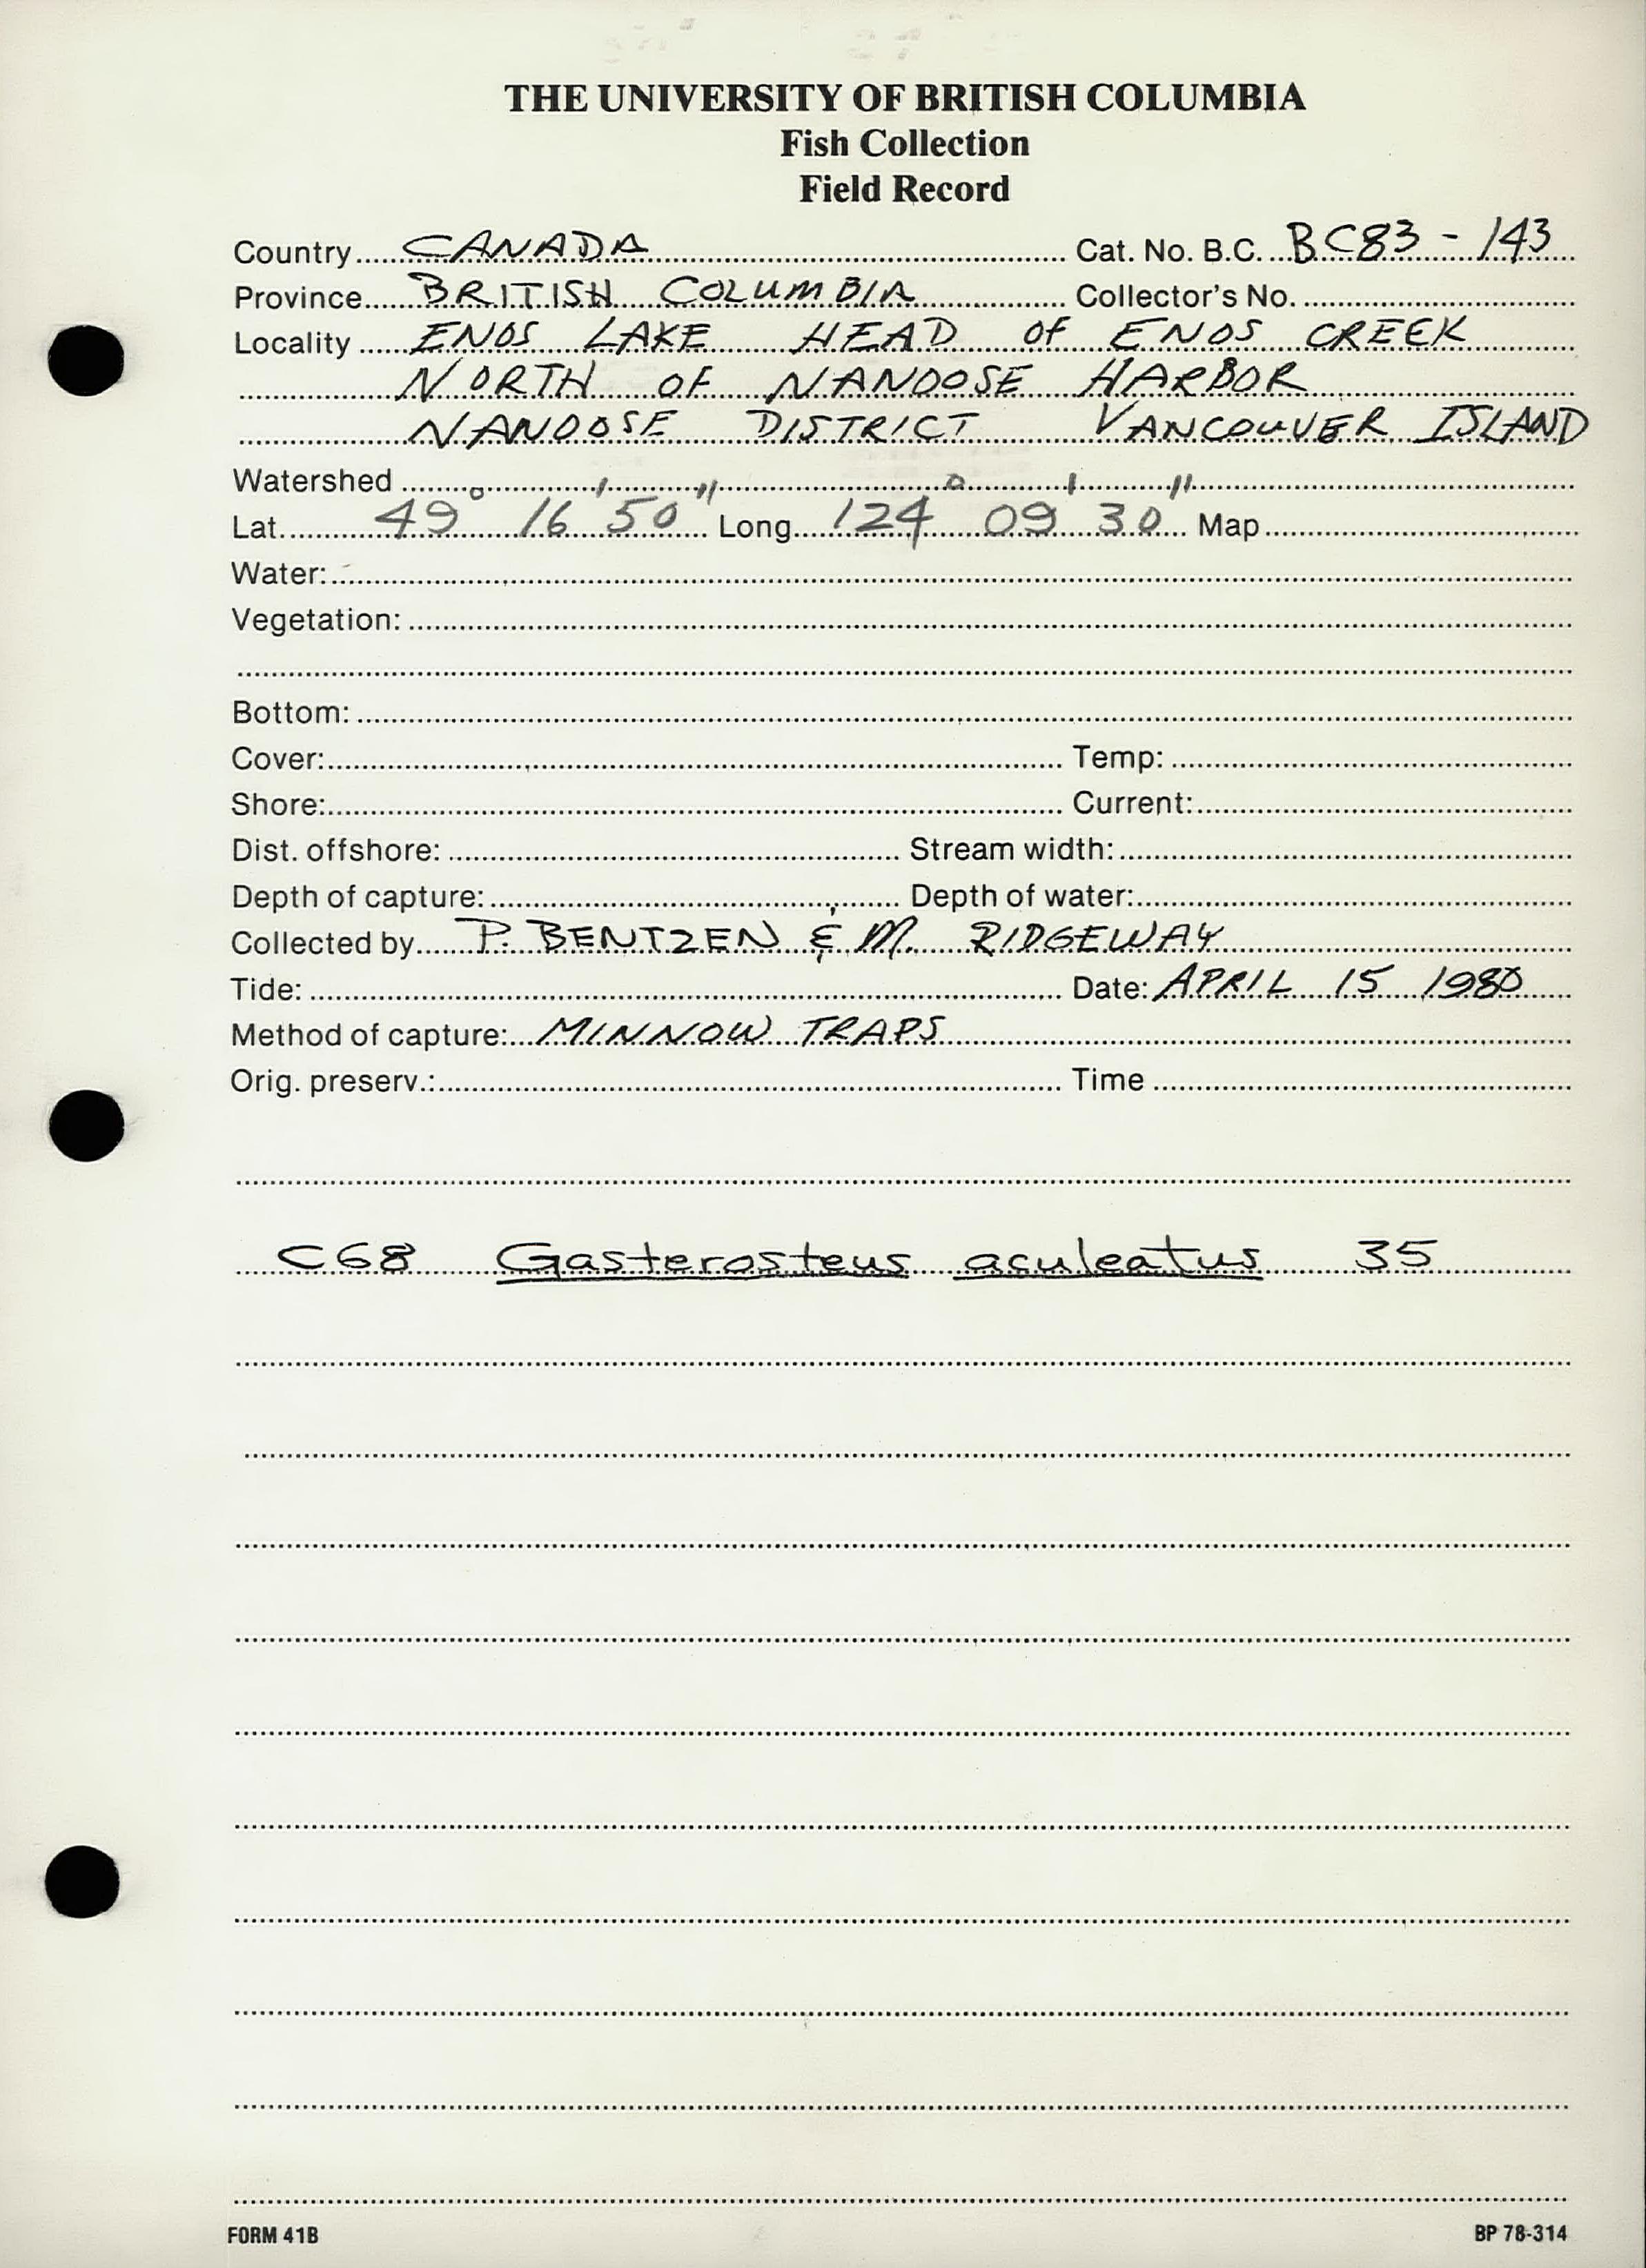 THE UNIVERSITY OF BRITISH COLUMBIA
Fish Collection
Field Record
Country CANADA Cat. No. B.C. BC83-143
Province BRITISH COLUMBIA Collector's No.
Locality ENOS LAKE HEAD OF ENOS CREEK
NORTH OF NANOOSE HARBOR
NANOOSE DISTRICT VANCOUVER ISLAND
Watershed
Lat. 49° 16' 50" Long. 124° 09' 30" Map
Water:
Vegetation:
Bottom:
Cover: Temp:
Shore: Current:
Dist. offshore: Stream width:
Depth of capture: Depth of water:
Collected by P. BENTZEN & M. RIDGEWAY
Tide: Date: APRIL 15 1980
Method of capture: MINNOW TRAPS
Orig. preserv.: Time
C68 Gasterosteus aculeatus 35
FORM 41B BP 78-314